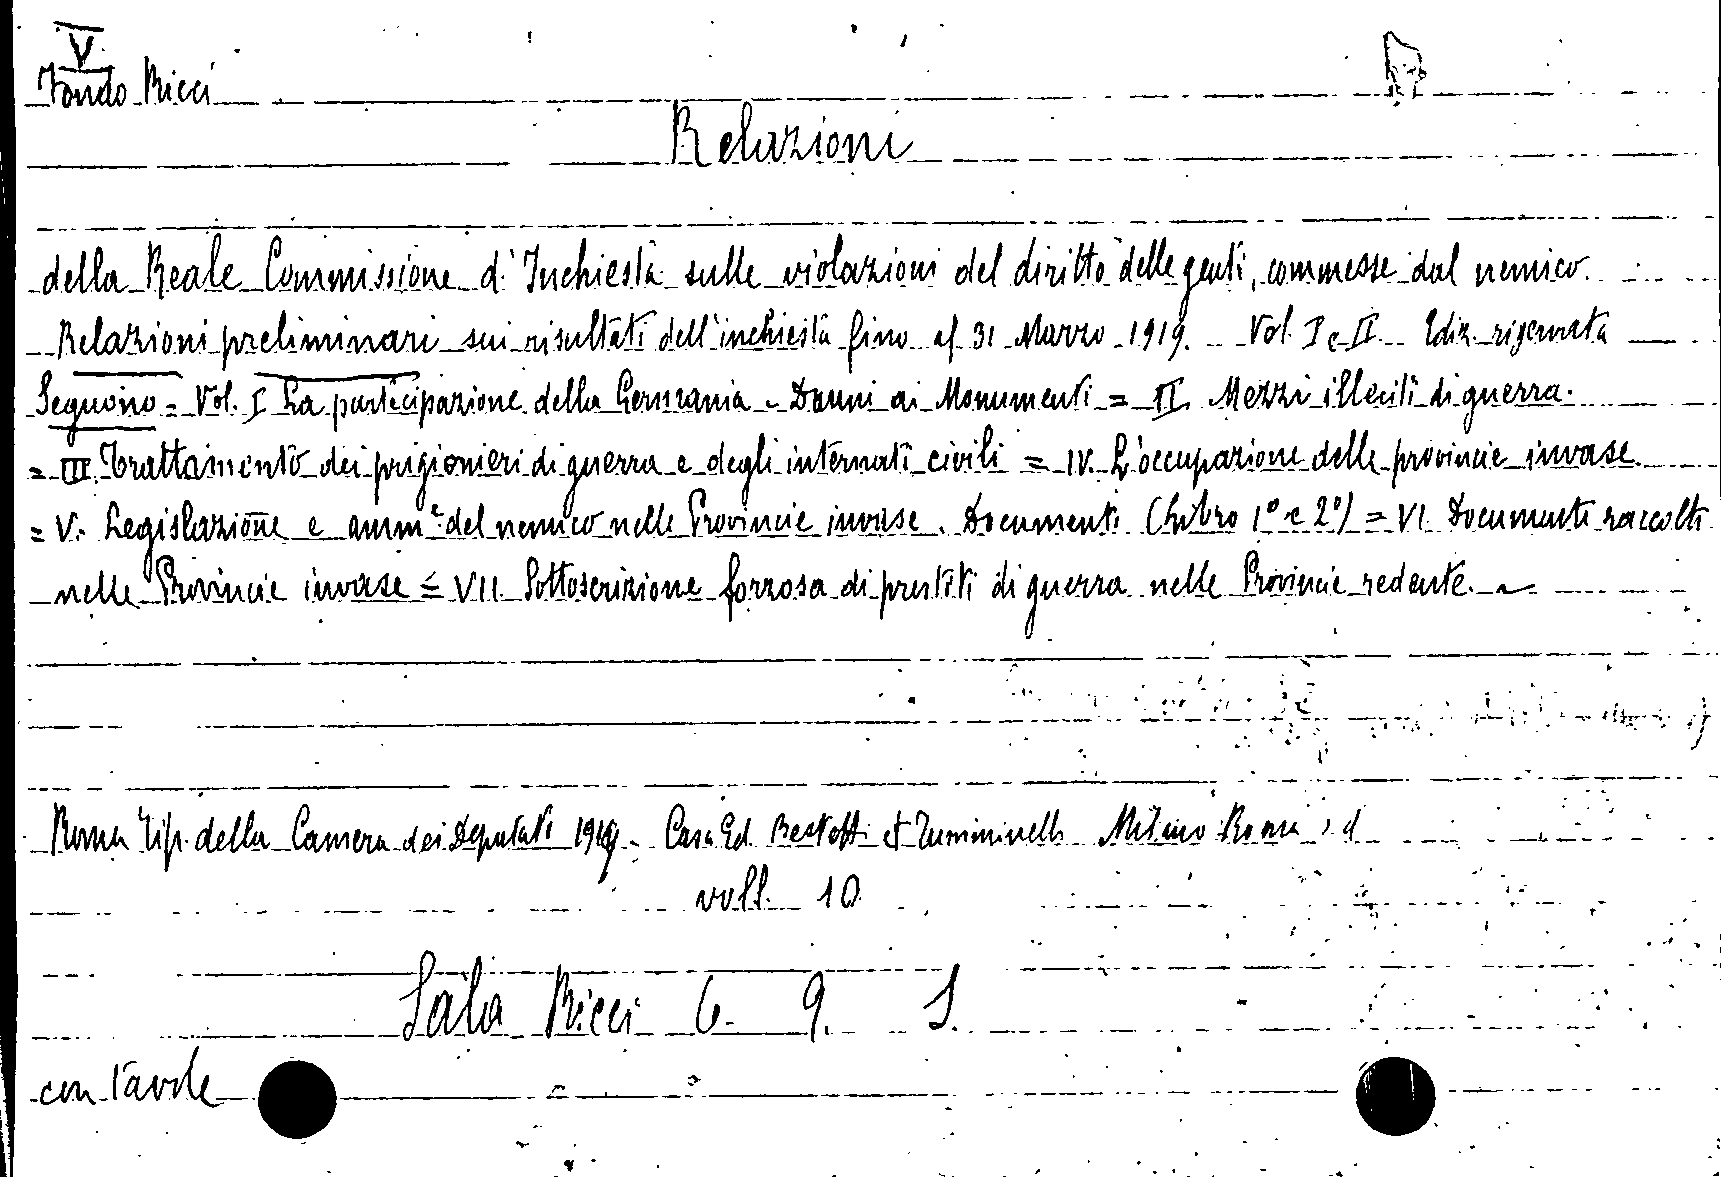 V
Fondo Ricci
Relazioni
della Reale Commissione d'Inchiesta sulle violazioni del diritto delle genti, commesse dal nemico.
Relazioni preliminari sui risultati dell'inchiesta fino al 31 Marzo 1919. Vol. I e II Ediz. riservata
Seguono = Vol. I La partecipazione della Germania - Danni ai Monumenti = II. Mezzi illeciti di guerra.
= III Trattamento dei prigionieri di guerra e degli internati civili = IV. L'occupazione delle provincie invase
= V. Legislazione e amm.e del nemico nelle Provincie invase. Documenti (Libro 1° e 2°) = VI Documenti raccolti
nelle Provincie invase = VII Sottoscrizione forzosa di prestiti di guerra nelle Provincie redente.
Roma Tip. della Camera dei Deputati 1919. Casa Ed. Bestetti et Tumminelli Milano Roma
voll. 10
Sala Ricci 6. 9.
con tavole